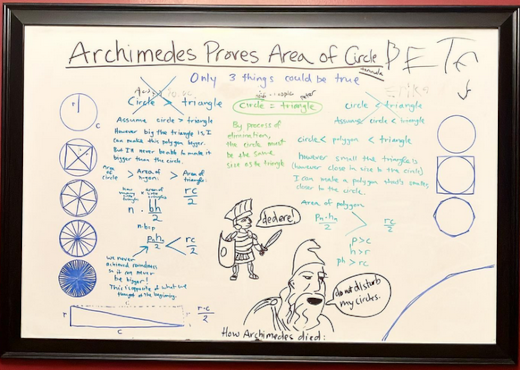 Archimedes Proves Area of Circle
Only 3 things could be true
Circle > triangle
Assume circle > triangle
However big the triangle is I
can make this polygon bigger.
But it'll never be able to make it
bigger than the circle.
Area of circle > Area of > Area of triangle
n · bh/2
rc/2
< rc/2
we never
achieved roundness
so it can never
be bigger!
This is opposite of what we
thought at the beginning.
r
c
r
c
r·c/2
circle = triangle
By process of
elimination,
the circle must
be the same
size as the triangle
circle < triangle
Assume circle < triangle
circle < polygon < triangle
however small the triangle is
(however close in size to the circle)
I can make a polygon that's
closer to the circle.
Area of polygon
rc/2
p > c
h > r
ph > rc
dedere!
do not disturb
my circles.
How Archimedes died:
PETE